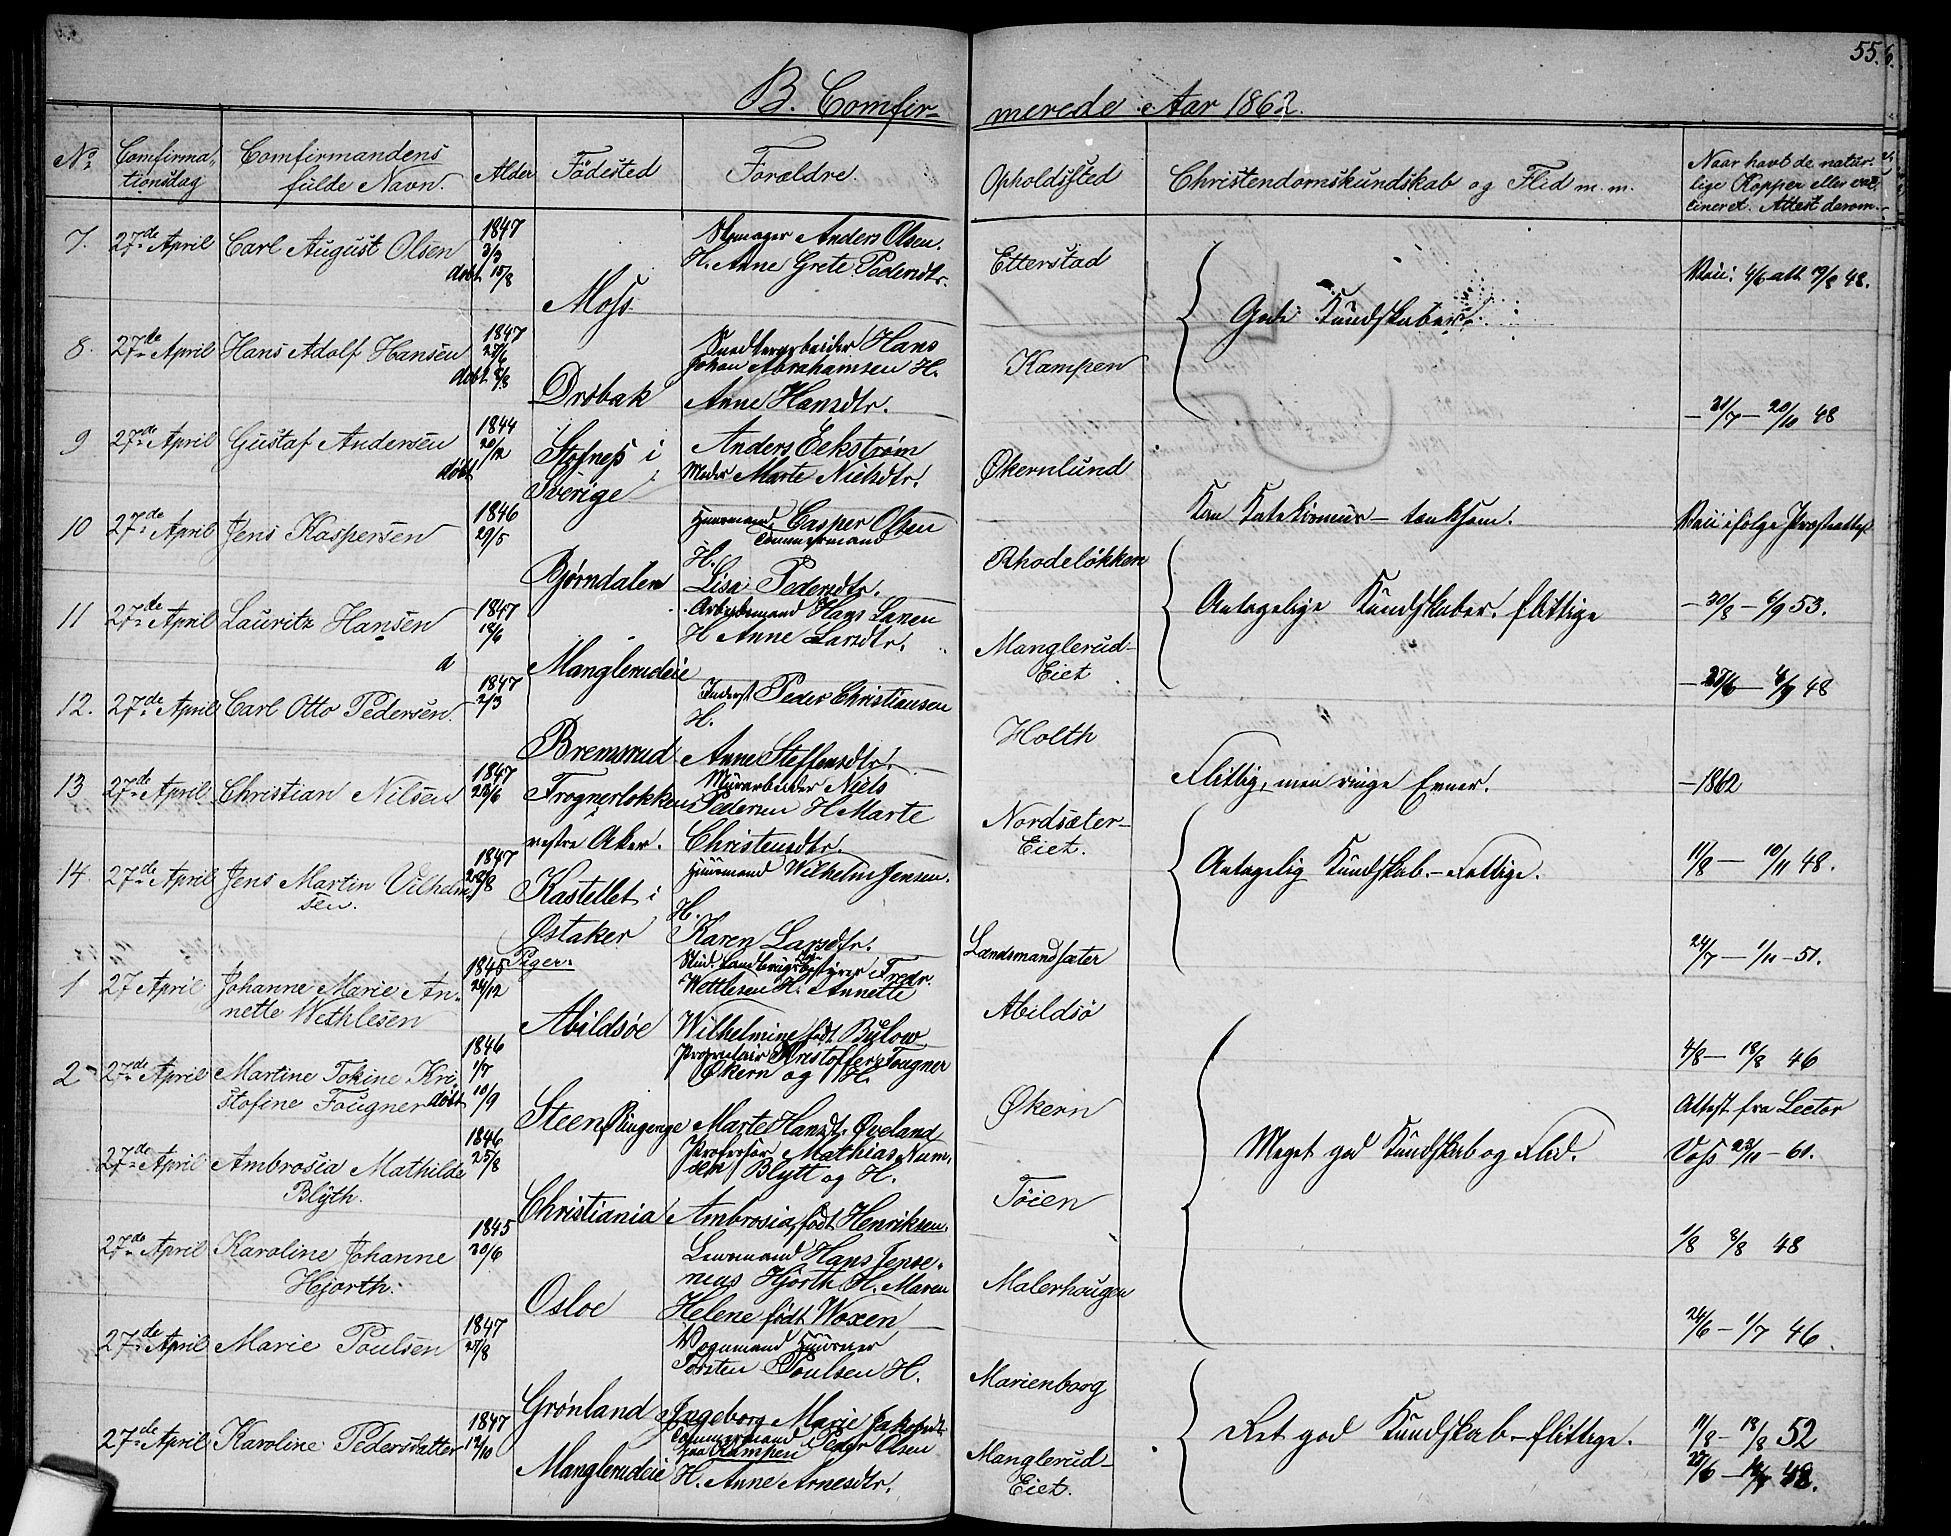 55.
B. Comfir- merede Aar 1862.
No. Comfirma,, tionsdag Comfirmandens fulde Navn. Alder Födested Forældre. Opholdssted Christendomskundskab og Flid m.m. Naar havt de natur: lige Kopper eller vac, cineret. Attest derom.
7. 27de April Carl August Olsen 1847 3/3 döbt 15/8 Moss Skomager Anders Olsen. H. Anne Grete Pedersdtr. Etterstad Gode Kundskaber. Vaci: 4/6 att 19/8 48.
8. 27de April Hans Adolf Hansen 1847 döbt 8/8 Dröbak Snedkerarbeider Hans Johan Abrahamsen H. Anne Hansdtr. Kampen 31/7 – 20/10 48
9 27de April Gustaf Andersen 1844 20/12 döbt Sverige Anders Eckström Moder Marte Nielsdtr. Økernlund Kan Katekismus – tænksom. Vaci ifölge Presteattest
10 27de April Jens Kaspersen 1846 29/5 Bjørndalen Huusmand, Tømmermand Casper Olsen H. Lisa Pedersdtr. Rhodeløkken Antagelige Kundskaber. flittige – 30/8 – 6/9 53.
11 27de April Lauritz Hansen 1847 18/6 Manglerudeie Arbeidsmand Hans Larsen H Anne Larsdtr. Manglerud- Eiet
12. 27de April Carl Otto Pedersen. 1847 2/3 Bremsrud Inderst Peder Christiansen H. Anne Steffensdtr. Holth Flittig, men ringe Evner. – 1862
13 27de April Christian Nilsen 1847 23/6 Frognerløkken vestre Aker. Murarbeider Niels Pedersen H Marte Christensdtr. Nordsæter- Eiet. Antagelig Kundskab. – Flittige. 11/8 – 10/11 48.
14. 27de April Jens Martin Vilhelm, sen. 1847 28/8 Kastellet i Østaker Huusmand Wilhelm Jensen. H. Karen Larsdtr. Lændsmandsæter 24/7 – 1/11 – 51.
Piger.
1 27 April Johanne Marie An- nette Wethlesen 1845 24/12 Abildsøe Stud. Landbrugsbestyrer Fredr. Wettlesen H. Annette Wilhelmine født Bülow Abildsö 4/8 – 18/8 46
2 27de April Martine Tokine Kri- stofine Fougner döbt 1846 1/7 10/9 Steen Ringerige Proprietair Kristoffer Fougner Økern og H. Marte Hansdt. Øveland Økern Meget god Kundskab og Flid. Attest fra Lector Voss 23/11 – 61.
27de April Ambrosia Mathilde Blÿth. 1846 25/8 Christiania Professor Mathias Num, sen Blytt og H. Ambrosia, født Henriksen. Töien 1/8 8/8 48
27de April Karoline Johanne Hjorth. 1845 30/6 Osloe Hans Jense, nius Hjorth H. Maren Helene født Woxen Malerhaugen 24/6 – 1/7 46.
27de April Marie Poulsen 1847 27/8 Grønland Vognmand Torsten Poulsen H. Ingeborg Marie Jakobsdtr. Marienborg Ret god Kundskab – flittige. 11/8 – 18/8 52
27de April Karoline Pedersdatter 1847 12/10 Manglerudeie Tømmermand paa Kampen Peder Olsen H. Anne Arnesdtr. Manglerud- Eiet. 48.